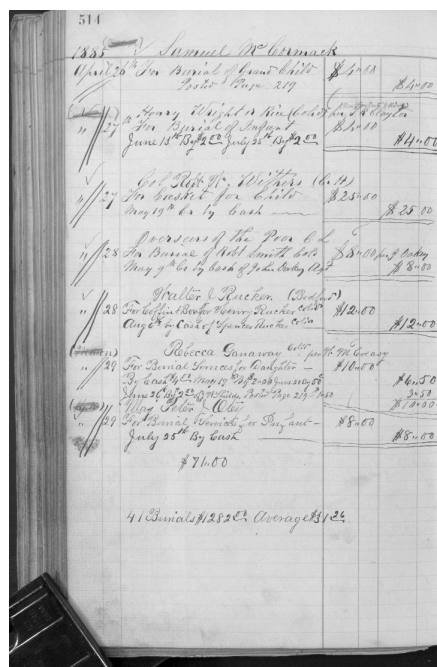 514
1885 Samuel McCormack
April 26th For Burial of Grand Child $4.00
Posted Page 219 $4.00
Henry Wright & Rice (Cold)
" 27 For Burial of Infant $4.00
June 13th By $2.00 July 25th By $2.00 $4.00
Col Robt W. Withers
" 27 For Casket for Child $25.00
May 19th Cr by Cash $25.00
Overseers of the Poor C L
" 28 For Burial of Robt Smith Cold $8.00 J Oakey
May 9th Cr by Cash of John Oakey Agt $8.00
Walter J. Rucker (Bedford)
" 28 For Coffin & Box for Henry Rucker Cold $12.00
Aug 6th by Cash of Spencer Rucker Cold $12.00
Rebecca Ganaway Cold
" 29 For Burial Services for Daughter $10.00
By Cash $4.00 May 19th $6.50
Posted Page 219 3.50
$10.00
Peter J. Otey
" 29 For Burial Services for Infant $8.00
July 25th By Cash $8.00
$71.00
41 Burials $1282.00 Average $31.26